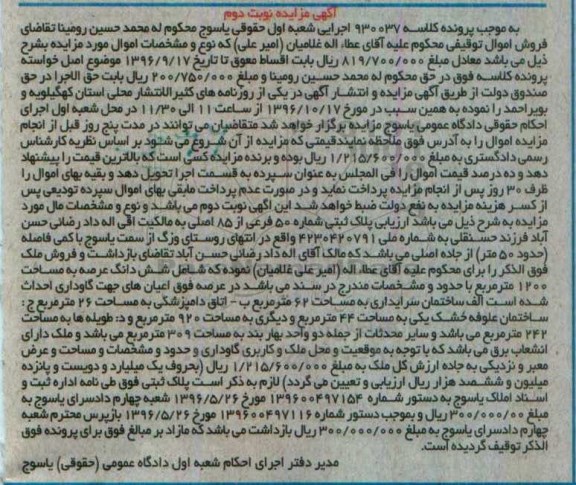 آگهی مزایده نوبت دوم
به موجب پرونده کلاسه ۹۳۰۰۳۷ اجرایی شعبه اول حقوقی یاسوج محکوم له محمد حسین رومینا تقاضای
فروش اموال توقیفی محکوم علیه آقای عطاء اله غلامیان (امیر علی) که نوع و مشخصات اموال مورد مزایده بشرح
ذیل می باشد معادل مبلغ ۸۱۹/۷۰۰/۰۰۰ ریال بابت اقساط معوق تا تاریخ ۱۳۹۶/۹/۱۷ موضوع اصل خواسته
پرونده کلاسه فوق در حق محکوم له محمد حسین رومینا و مبلغ ۲۰۰/۷۵۰/۰۰۰ ریال بابت حق الاجرا در حق
صندوق دولت از طریق آگهی مزایده و انتشار آگهی در یکی از روزنامه های کثیرالانتشار محلی استان کهگیلویه و
بویراحمد را نموده به همین سبب در مورخ ۱۳۹۶/۱۰/۱۷ از ساعت ۱۱ الی ۱۱/۳۰ در محل شعبه اول اجرای
احکام حقوقی دادگاه عمومی یاسوج مزایده برگزار خواهد شد متقاضیان می توانند در مدت پنج روز قبل از انجام
مزایده اموال را به آدرس فوق ملاحظه نمایندقیمتی که مزایده از آن شروع می شود بر اساس نظریه کارشناس
رسمی دادگستری به مبلغ ۱/۲۱۵/۶۰۰/۰۰۰ ریال بوده و برنده مزایده کسی است که بالاترین قیمت را پیشنهاد
دهد و ده درصد قیمت اموال را فی المجلس به عنوان سپرده به قسمت اجرا تحویل دهد و بقیه بهای اموال را
ظرف ۳۰ روز پس از انجام مزایده پرداخت نماید و در صورت عدم پرداخت مابقی بهای اموال سپرده تودیعی پس
از کسر هزینه مزایده به نفع دولت ضبط خواهد شد این آگهی نوبت دوم می باشد و نوع و مشخصات مال مورد
مزایده به شرح ذیل می باشد ارزیابی پلاک ثبتی شماره ۵۰ فرعی از ۸۵ اصلی به مالکیت آقای اله داد رضائی حسن
آباد فرزند حسنقلی به شماره ملی ۴۲۳۰۴۲۰۷۹۱ واقع در انتهای روستای وزگ از سمت یاسوج با کمی فاصله
(حدود ۵۰ متر) از جاده اصلی می باشد که مالک آقای اله داد رضائی حسن آباد تقاضای بازداشت و فروش ملک
فوق الذکر را برای محکوم علیه آقای عطاء اله (امیر علی غلامیان) نموده که شامل شش دانگ عرصه به مساحت
۱۲۰۰ مترمربع با حدود و مشخصات مندرج در سند می باشد در عرصه فوق اعیان های جهت گاوداری احداث
شده است الف ساختمان سرایداری به مساحت ۶۲ مترمربع ب - اتاق دامپزشکی به مساحت ۲۶ مترمربع ج :
ساختمان علوفه خشک یکی به مساحت ۴۴ مترمربع و دیگری به مساحت ۹۲۰ مترمربع و د: طویله ها به مساحت
۲۴۲ مترمربع می باشد و سایر محدثات از جمله دو واحد بهار بند به مساحت ۳۰۹ مترمربع می باشد و ملک دارای
انشعاب برق می باشد که با توجه به موقعیت و محل ملک و کاربری گاوداری و حدود و مشخصات و مساحت و عرض
معبر و نزدیکی به جاده ارزش کل ملک به مبلغ ۱/۲۱۵/۶۰۰/۰۰۰ ریال (بحروف یک میلیارد و دویست و پانزده
میلیون و ششصد هزار ریال ارزیابی و تعیین می گردد) لازم به ذکر است پلاک ثبتی فوق طی نامه اداره ثبت و
اسناد املاک یاسوج به دستور شماره ۱۳۹۶۰۰۴۹۷۱۵۴ مورخ ۱۳۹۶/۵/۲۶ شعبه چهارم دادسرای یاسوج به
مبلغ ۳۰۰/۰۰۰/۰۰ ریال و بموجب دستور شماره ۱۳۹۶۰۰۴۹۷۱۱۶ مورخ ۱۳۹۶/۵/۲۶ بازپرس محترم شعبه
چهارم دادسرای یاسوج به مبلغ ۳۰۰/۰۰۰/۰۰۰ ریال بازداشت می باشد که مازاد بر مبالغ فوق برای پرونده فوق
الذکر توقیف گردیده است.
مدیر دفتر اجرای احکام شعبه اول دادگاه عمومی (حقوقی) یاسوج